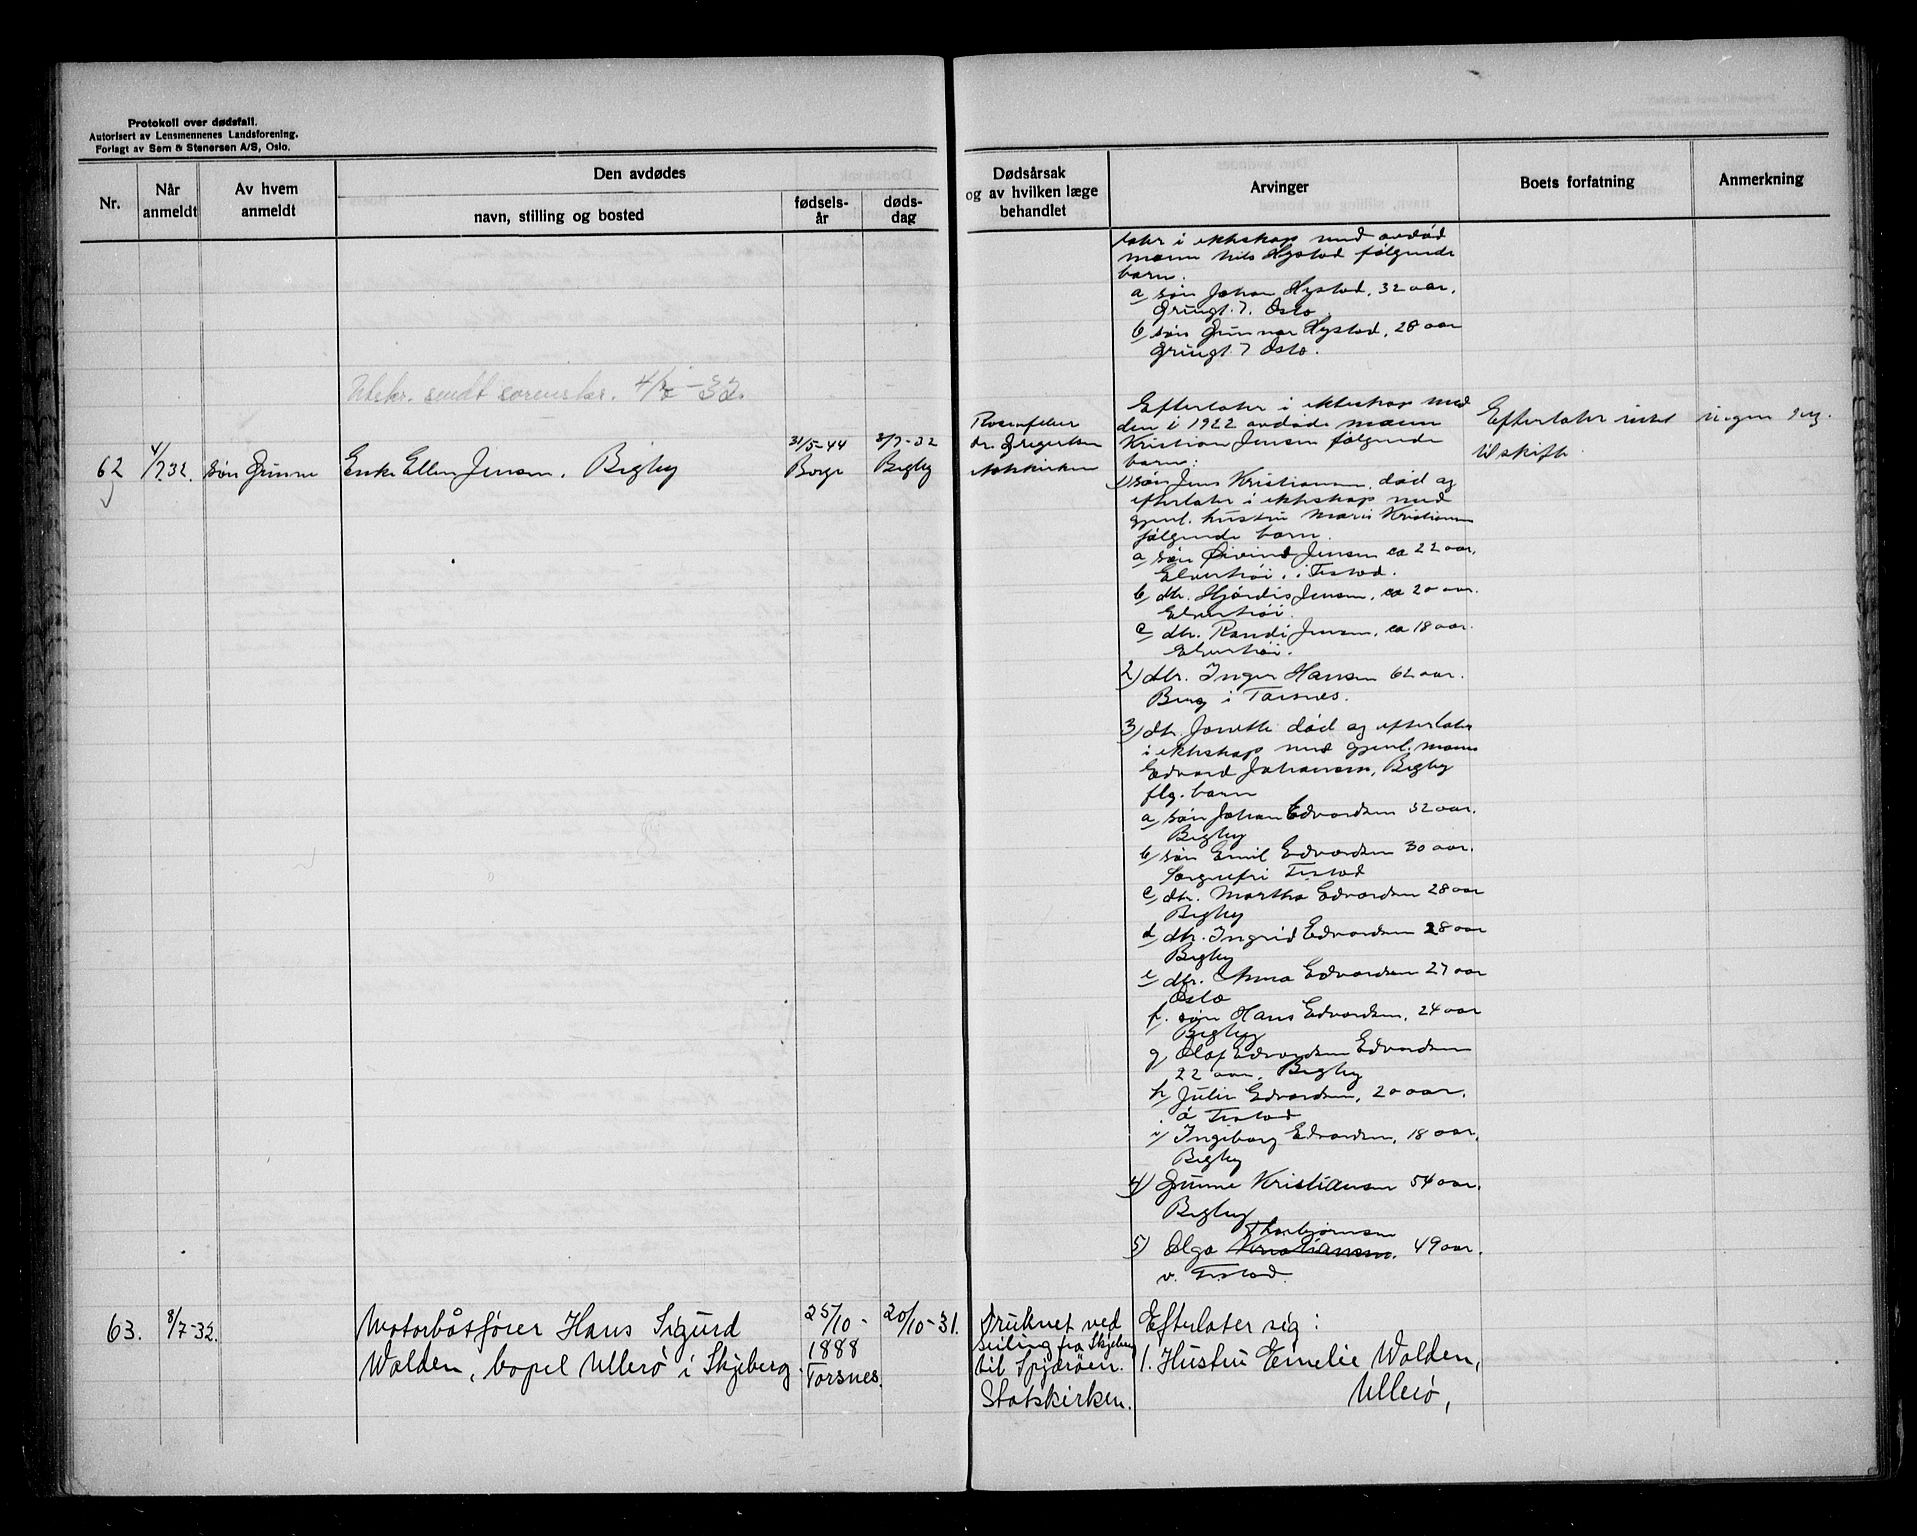 Protokoll over dødsfall.
Autorisert av Lensmennenes Landsforening.
Forlagt av Sem & Stenersen A/S, Oslo.
Nr.
Når anmeldt
Av hvem anmeldt
Den avdødes
navn, stilling og bosted
fødsels-
år
døds-
dag
Dødsårsak
og av hvilken læge
behandlet
Arvinger
Boets forfatning
Anmerkning
later i ekteskap med avdød
mann Nils Hystad følgende
barn.
a søn Johan Hystad, 32 aar,
Grungt. 7. Oslo
b) søn Gunnar Hystad, 28 aar
Grungt 7 Oslo.
Utskr. sendt sorenskr. 4/7-32.
62 4/7 32. søn Grunne Enke Ellen Jensen, Bigby
31/5-44
Borge
3/7-32
Bigby
dr. Gregertsen
Efterlater i ekteskap med
den i 1922 avdøde mann
Kristian Jensen følgende
barn:
1) søn Jens Kristiansen, død og
efterlater i ekteskap med
gjenl. hustru Marie Kristiansen
følgende barn.
a søn Øivind Jensen ca 22 aar,
Elverhøi, i Tistad.
b dtr. Hjørdis Jensen, ca 20 aar.
Elverhøi.
c dtr. Randi Jensen, ca 18 aar.
Elverhøi.
2) dtr. Inger Hansen 62 aar.
Berg i Torsnes.
3) dtr. Janette død og efterlater
i ekteskap med gjenl. mann
Edvard Johansen, Bigby
flg. barn
a søn Johan Edvardsen 32 aar.
Bigby
b søn Emil Edvardsen 30 aar.
Sorgnefri Tistad
c dtr. Martha Edvardsen 28 aar
Bigby
d dtr. Ingrid Edvardsen 28 aar
Bigby
e dtr. Anna Edvardsen 27 aar
Oslo
f. søn Hans Edvardsen, 24 aar
Bigby
g Olaf Edvardsen Edvardsen
22 aar, Bigby
h Julie Edvardsen, 20 aar.
å Tistad
i) Ingeborg Edvardsen, 18 aar,
Bigby
4) Grunne Kristiansen 54 aar.
Bigby
Thorbjørnsen
5) Olga Kristiansen, 49 aar.
v. Tistad.
Efterlater intet
til skifte.
ingen
63. 8/7-32. Motorbåtfører Hans Sigurd
Walden, bopel Ullerø i Skjeberg.
25/10-
1888
Torsnes.
20/10-31.
Druknet ved
seiling fra Skjeberg
til Spjærøen.
Statskirken.
Efterlater sig:
1. Hustru Emelie Walden,
Ullerø,